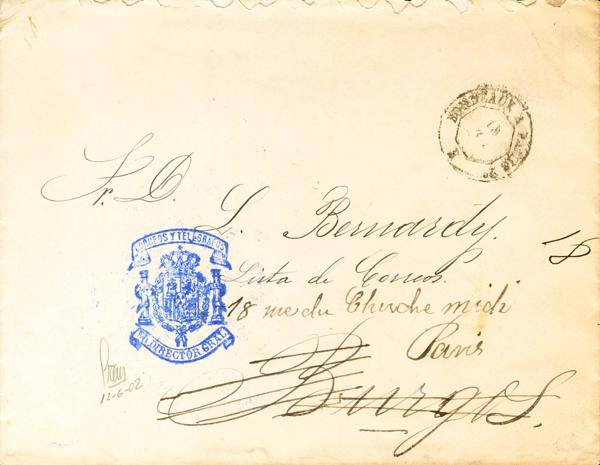 BORDEAUX A PARIS
Sr. D.
L. Bernardy.
CORREOS Y TELEGRAFOS
18
Lista de Correos.
18 rue du Cherche midi
EL DIRECTOR GRAL.
Paris
12-6-02
Burgos.